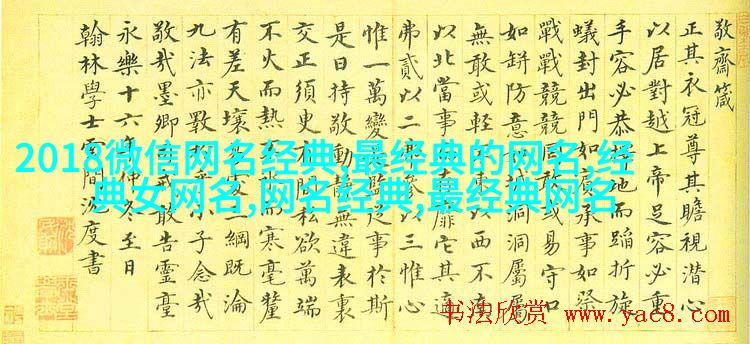 敬齋箴
正其衣冠尊其瞻視潛心
以居對越上帝足容必重
手容必恭地而蹈折旋
蟻封出門如賓承事如祭
戰戰兢兢敢或易守口
如缾防意城洞洞屬屬
無敢或輕以西不
以北當事靡它其適
弗貳以二以三惟心
惟一萬變從事於斯
是曰持敬動無違表裏
交正須更私欲萬端
不火而熱而寒毫釐
有差天壤三綱既淪
九法亦斁小子念哉
敬哉墨卿敢告靈臺
永樂十六仲冬至日
翰林學士間沈度書
2018微信网名经典,最经典的网名,经
典女网名,网名经典,最经典网名
书法欣赏 www.yac8.com